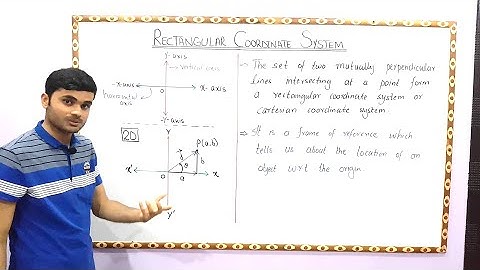 RECTANGULAR COORDINATE SYSTEM
Y-axis
vertical axis
-x-axis
O
x-axis
horizontal axis
-Y-axis
2D
Y
P(a,b)
b
θ
x'
O
a
x
Y'
→ The set of two mutually perpendicular
lines intersecting at a point form
a rectangular coordinate system or
cartesian coordinate system.
⇒ It is a frame of reference which
tells us about the location of an
object w.r.t the origin.